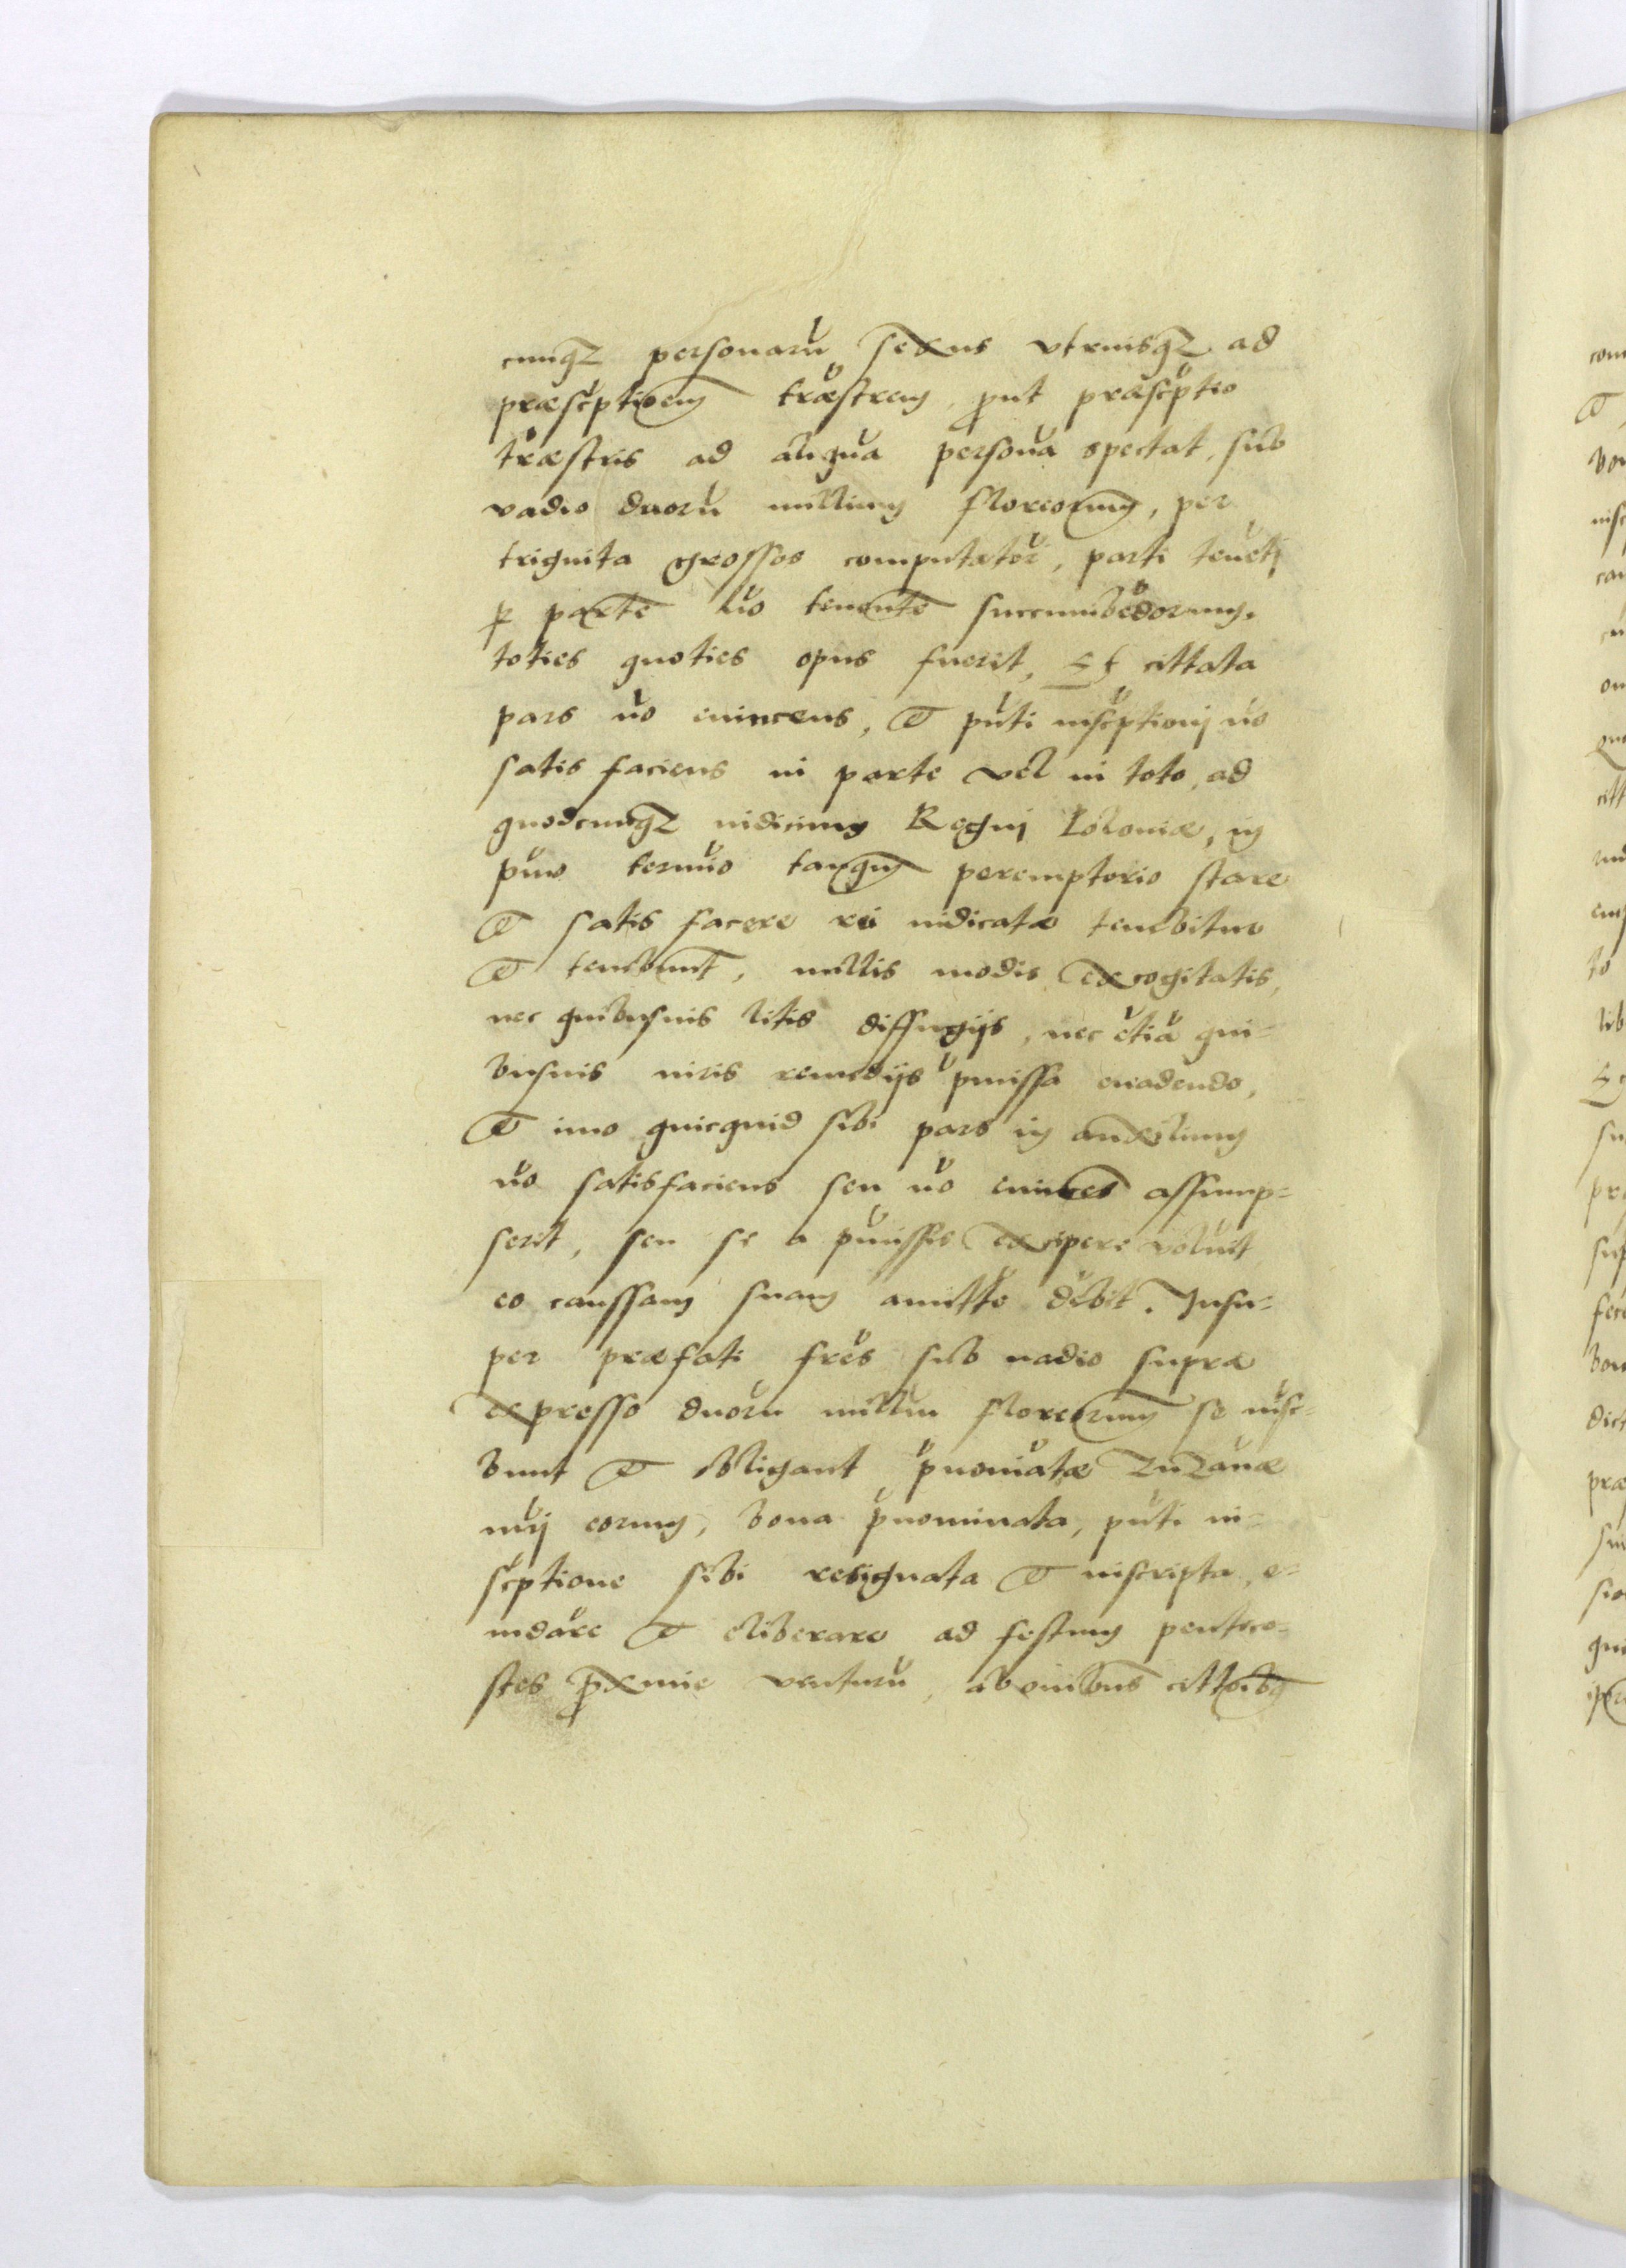 cunq3 personarū sexus vtriusq3 ad
præscptionem træstrem, prout præscptio
træstris ad aliqua persona spectat, sub
vadio duorū millium florenorum, per
triginta grossos computator, parti teneti
p parte no tenente succumbēdorum,
toties quoties opus fuerit, Et cittata
pars no euincens, et pnti inscptioni no
satis faciens in parte vel in toto, ad
quodcunq3 iudicium Regni Poloniæ, in
pmo termīo tanqm peremptorio stare
et satis facere rei iudicatæ tenebitur
et tenebunt, nullis modis excogitatis,
nec quibusuis litis diffugijs, nec etiā qui=
busuis iuris remedijs pmissa euadendo,
et imo quicquid sibi pars in auxilium
no satisfaciens seu no euinces assump=
serit, seu se a pmissis excipere voluit
eo caussam suam amitte debit. Insu=
per præfati fres sub uadio supra
expresso duoru milliu florenorum se insc=
bunt et obligant pnoiatæ ZuZanæ
nrij eorum, bona pnominata, pnti in=
scptione sibi resignata et inscripta, e=
undare et eliberare ad festum penteco=
stes proxime venturū, ab omibus cittoibq